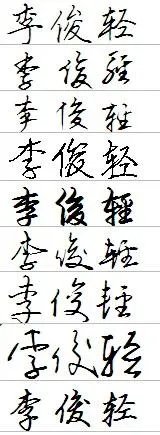 李俊轻
李俊轻
李俊轻
李俊轻
李俊輕
李俊輕
李俊轻
李俊轻
李俊轻